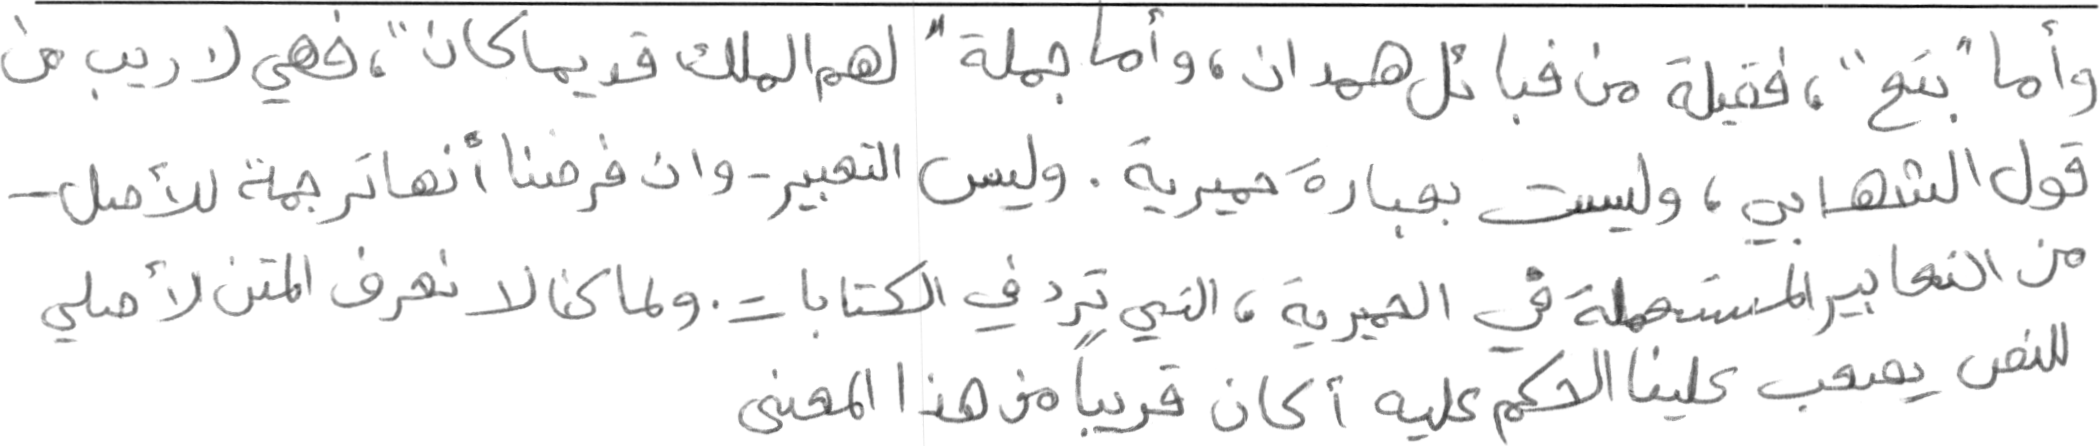 وأما "بتع"، فقيلة من قبائل همدان، وأما جملة "لهم الملك قديما كان"، فهي لا ريب من
قول الشهابي، وليست بعبارة حميرية. وليس التعبير- وان فرضنا أنها ترجمة للأصل-
من التعابير المستعملة في الحميرية، التي ترد في الكتابات. ولما كنا لا نعرف المتن لأصلي
للنص يصعب علينا الحكم عليه أكان قريباً من هذا المعنى